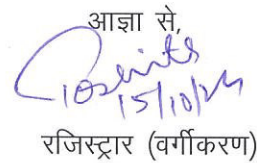 आज्ञा से,
15/10/24
रजिस्ट्रार (वर्गीकरण)